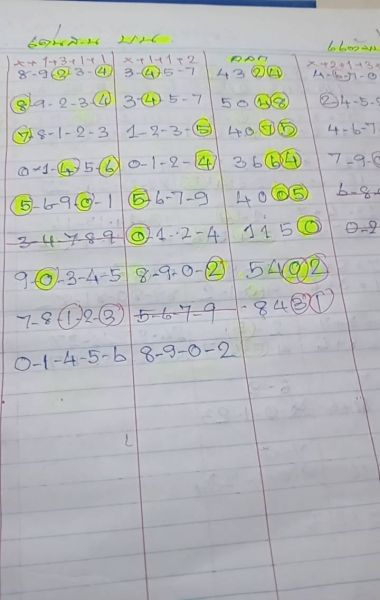 เด่นบน บน
x+1+3+1+1 x+1+1+2 ออก x+2+1+3+
8-9-2-3-4 3-4-5-7 4324 4-6-7-0
8-9-2-3-4 3-4-5-7 5048 2-4-5-
7-8-1-2-3 1-2-3-5 4075 4-6-7
0-1-4-5-6 0-1-2-4 3664 7-9-
5-6-9-0-1 5-6-7-9 4005 6-8-
3-4-7-8-9 0-1-2-4 1150 0-2
9-0-3-4-5 8-9-0-2 5402
7-8-1-2-3 5-6-7-9 8431
0-1-4-5-6 8-9-0-2